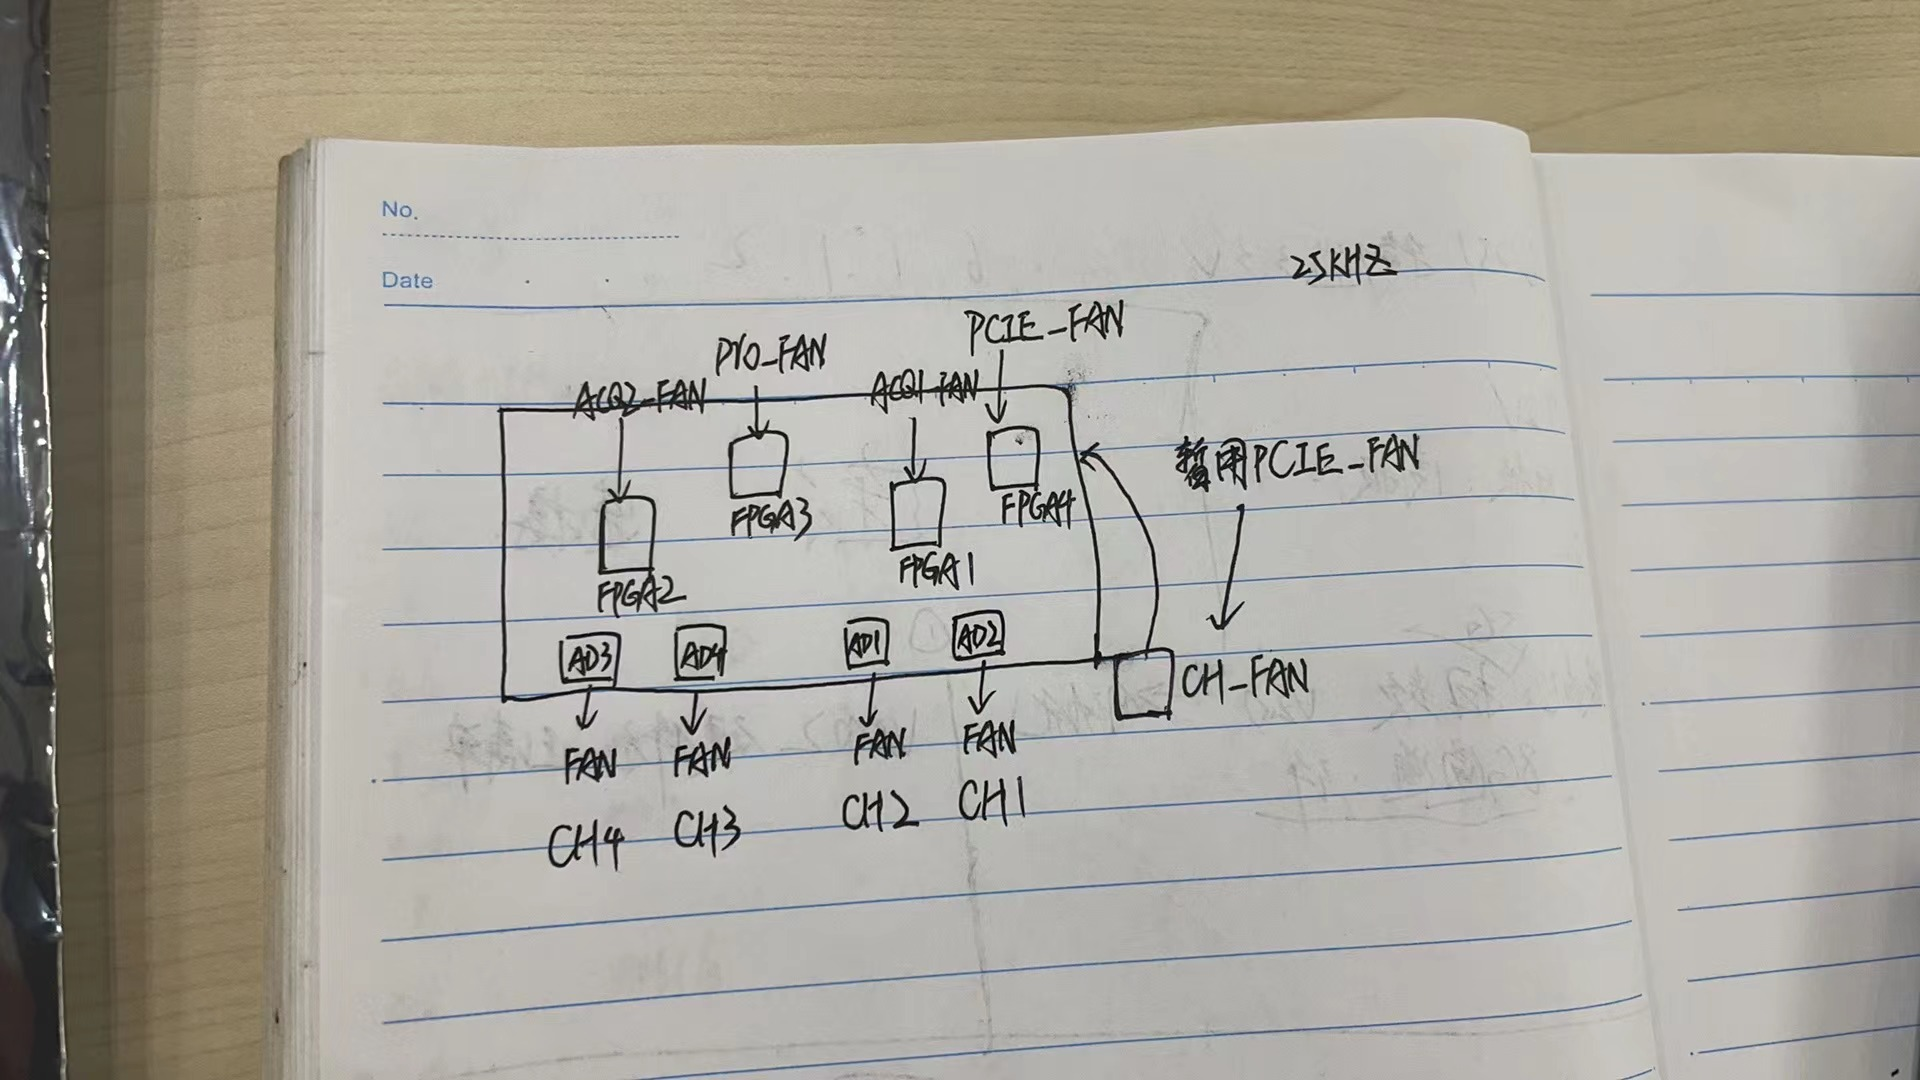 No.
Date
25KHZ
PCIE_FAN
PRO_FAN
ACQ2_FAN
ACQ1_FAN
暂用PCIE_FAN
FPGA3
FPGA4
FPGA2
FPGA1
AD3
AD4
AD1
AD2
CH_FAN
FAN
FAN
FAN
FAN
CH4
CH3
CH2
CH1